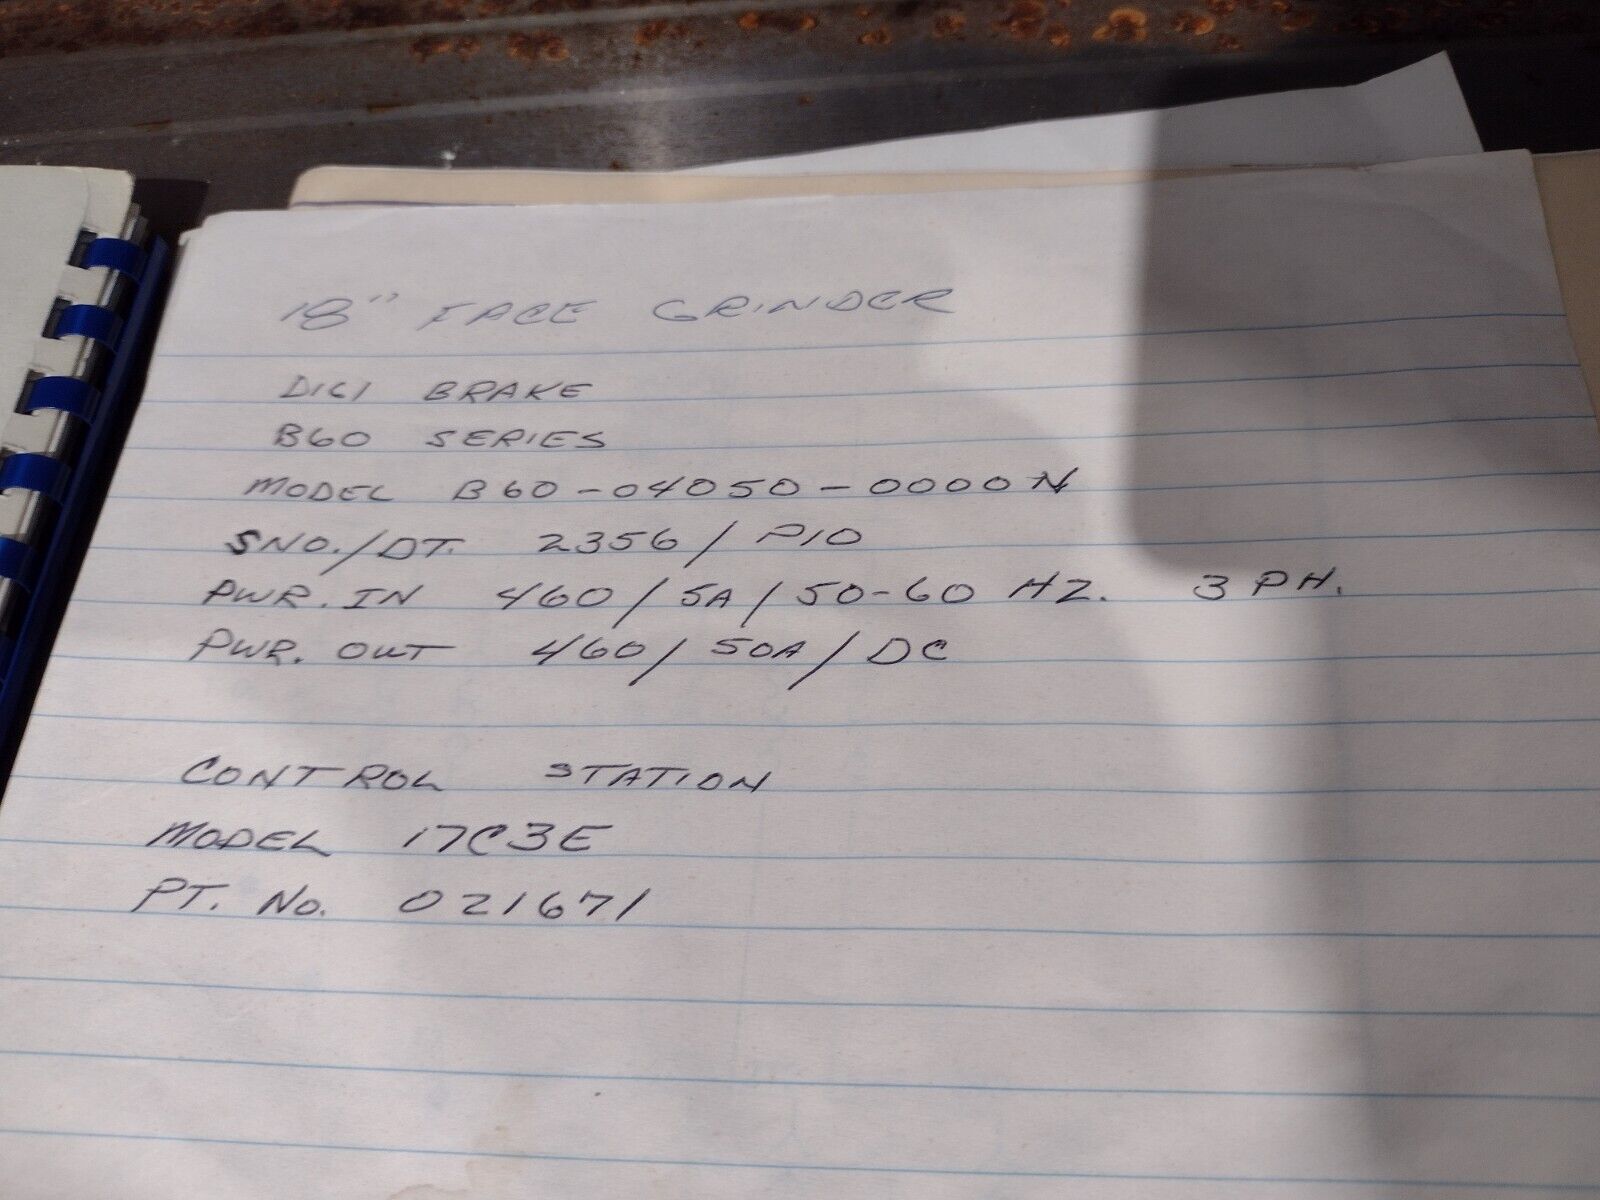 18" FACE GRINDER
DIGI BRAKE
B60 SERIES
MODEL B60-04050-0000N
SNO./DT. 2356/P10
PWR. IN 460/5A/50-60 HZ. 3 PH.
PWR. OUT 460/50A/DC
CONTROL STATION
MODEL 17C3E
PT. NO. 021671